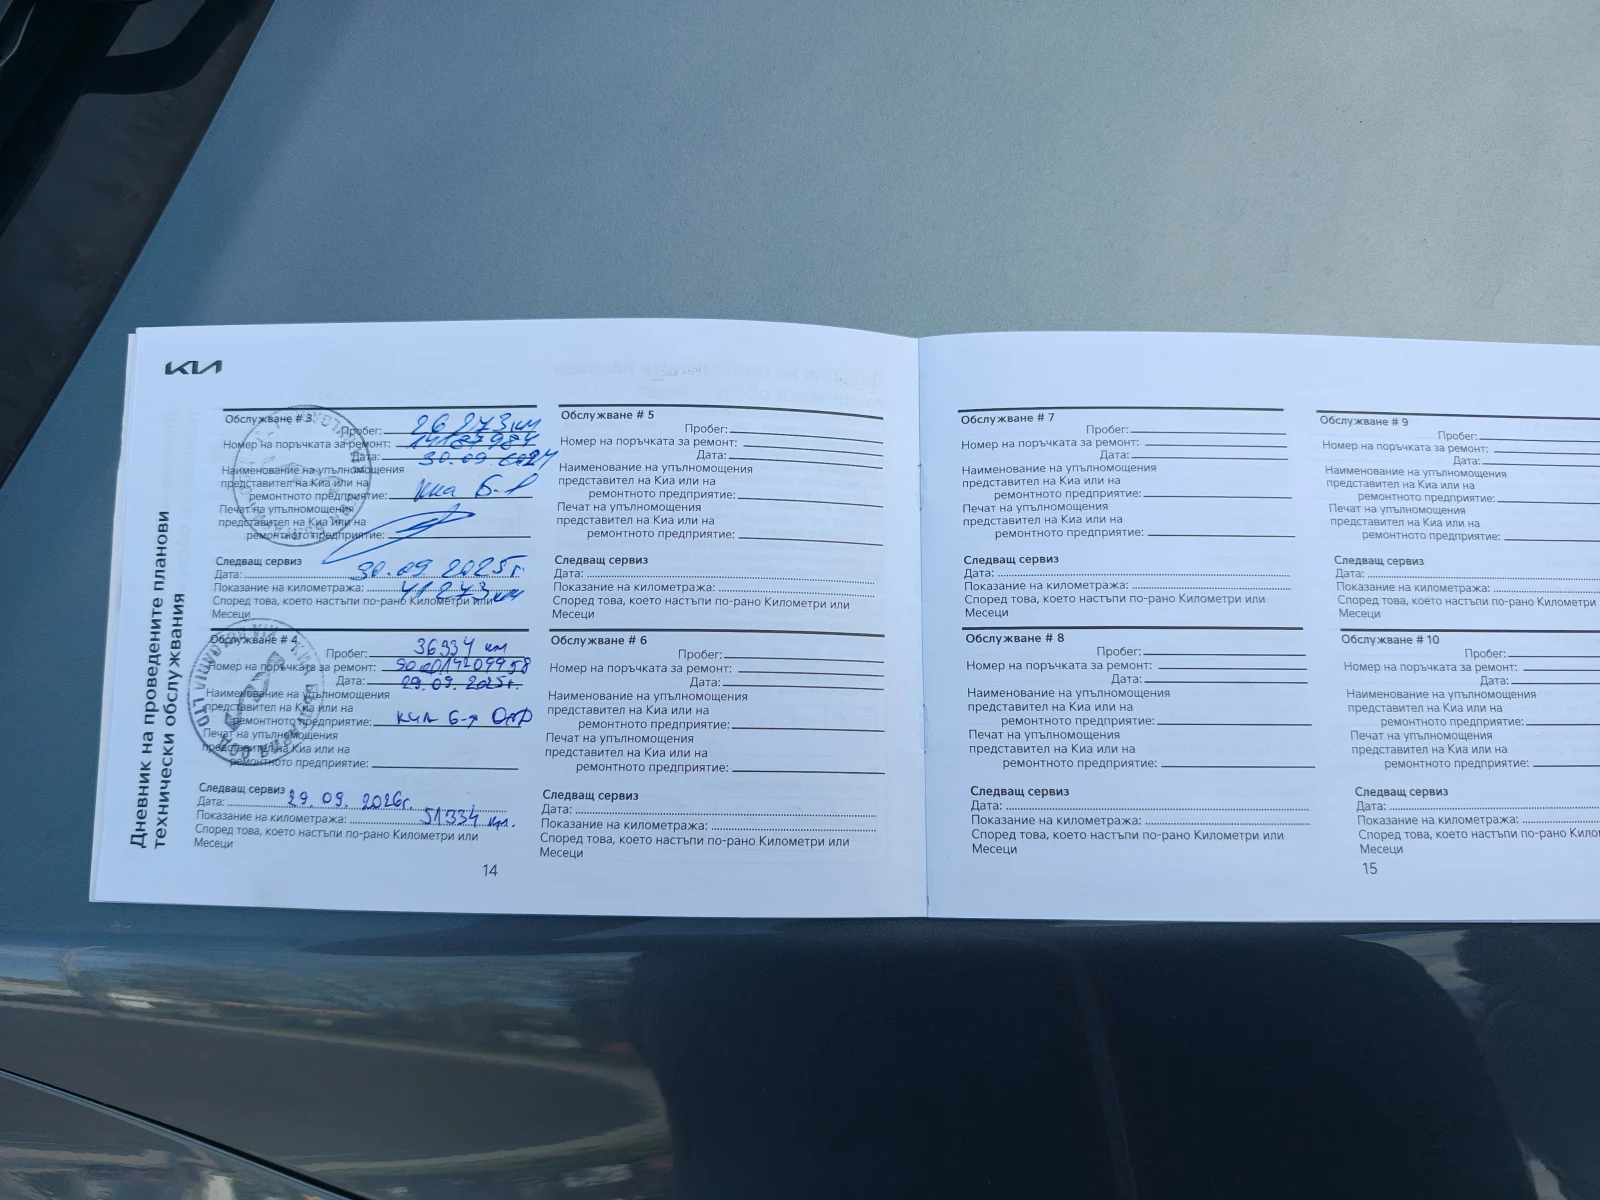 KIA
Дневник на проведените планови
технически обслужвания
Обслужване # 3
Пробег: 26 273 км
Номер на поръчката за ремонт: 14187984
Дата: 30.09.2024
Наименование на упълномощения
представител на Киа или на
ремонтното предприятие: Киа Б-я
Печат на упълномощения
представител на Киа или на
ремонтното предприятие:
Следващ сервиз
Дата: 30.09.2025г.
Показание на километража: 41273км
Според това, което настъпи по-рано Километри или
Месеци
Обслужване # 4
Пробег: 36334 км
Номер на поръчката за ремонт:
Дата: 29.09.2025г.
Наименование на упълномощения
представител на Киа или на
ремонтното предприятие: КИА Б-я
Печат на упълномощения
представител на Киа или на
ремонтното предприятие:
Следващ сервиз
Дата: 29.09.2026г.
Показание на километража: 51334 км.
Според това, което настъпи по-рано Километри или
Месеци
14
Обслужване # 5
Пробег:
Номер на поръчката за ремонт:
Дата:
Наименование на упълномощения
представител на Киа или на
ремонтното предприятие:
Печат на упълномощения
представител на Киа или на
ремонтното предприятие:
Следващ сервиз
Дата:
Показание на километража:
Според това, което настъпи по-рано Километри или
Месеци
Обслужване # 6
Пробег:
Номер на поръчката за ремонт:
Дата:
Наименование на упълномощения
представител на Киа или на
ремонтното предприятие:
Печат на упълномощения
представител на Киа или на
ремонтното предприятие:
Следващ сервиз
Дата:
Показание на километража:
Според това, което настъпи по-рано Километри или
Месеци
Обслужване # 7
Пробег:
Номер на поръчката за ремонт:
Дата:
Наименование на упълномощения
представител на Киа или на
ремонтното предприятие:
Печат на упълномощения
представител на Киа или на
ремонтното предприятие:
Следващ сервиз
Дата:
Показание на километража:
Според това, което настъпи по-рано Километри или
Месеци
Обслужване # 8
Пробег:
Номер на поръчката за ремонт:
Дата:
Наименование на упълномощения
представител на Киа или на
ремонтното предприятие:
Печат на упълномощения
представител на Киа или на
ремонтното предприятие:
Следващ сервиз
Дата:
Показание на километража:
Според това, което настъпи по-рано Километри или
Месеци
Обслужване # 9
Пробег:
Номер на поръчката за ремонт:
Дата:
Наименование на упълномощения
представител на Киа или на
ремонтното предприятие:
Печат на упълномощения
представител на Киа или на
ремонтното предприятие:
Следващ сервиз
Дата:
Показание на километража:
Според това, което настъпи по-рано Километри
Месеци
Обслужване # 10
Пробег:
Номер на поръчката за ремонт:
Дата:
Наименование на упълномощения
представител на Киа или на
ремонтното предприятие:
Печат на упълномощения
представител на Киа или на
ремонтното предприятие:
Следващ сервиз
Дата:
Показание на километража:
Според това, което настъпи по-рано
Месеци
15